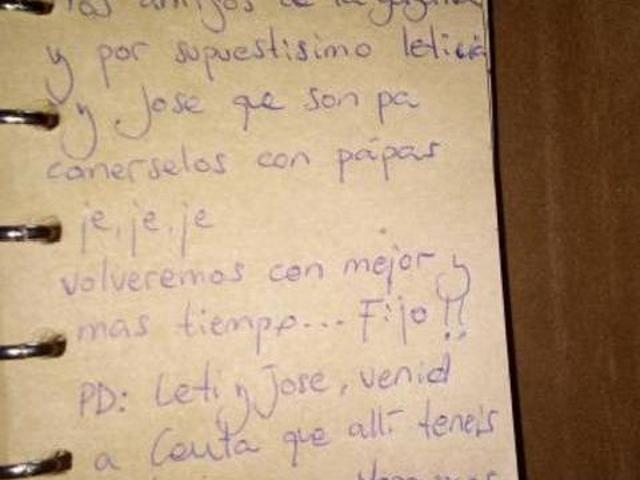 los amigos de la
y por supuestisimo leticia
y Jose que son pa
comerselos con pápas
je, je, je
volveremos con mejor y
mas tiempo... Fijo!!
PD: Leti y Jose, venid
a Ceuta que allí teneis